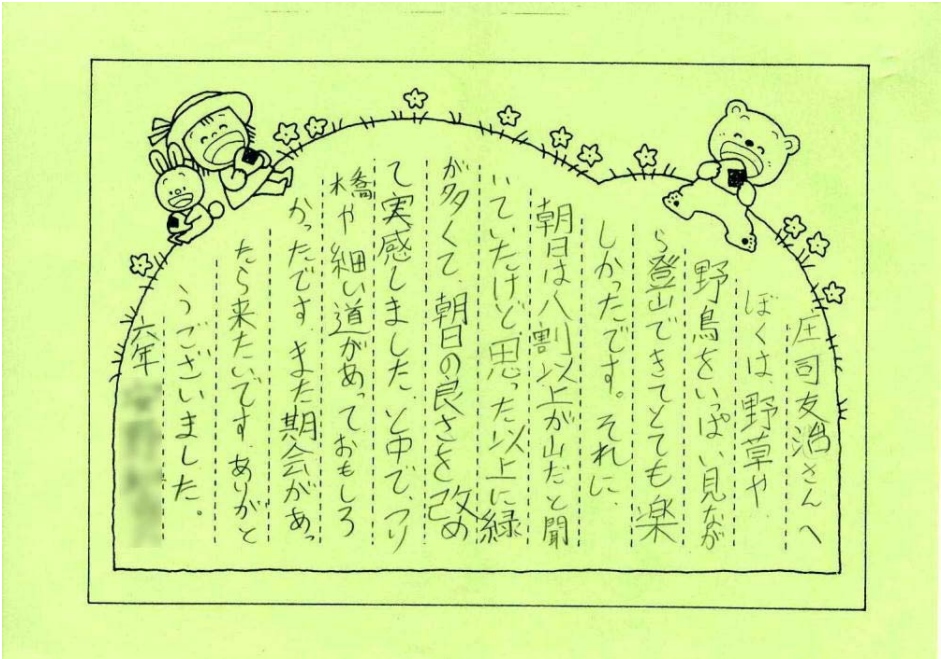 庄司友治さんへ
ぼくは、野草や
野鳥をいっぱい見なが
ら登山できてとても楽
しかったです。それに、
朝日は八割以上が山だと聞
いていたけど、思った以上に緑
が多くて、朝日の良さを改め
て実感しました。と中で、つり
橋や細い道があっておもしろ
かったです。また期会があっ
たら来たいです。ありがと
うございました。
六年